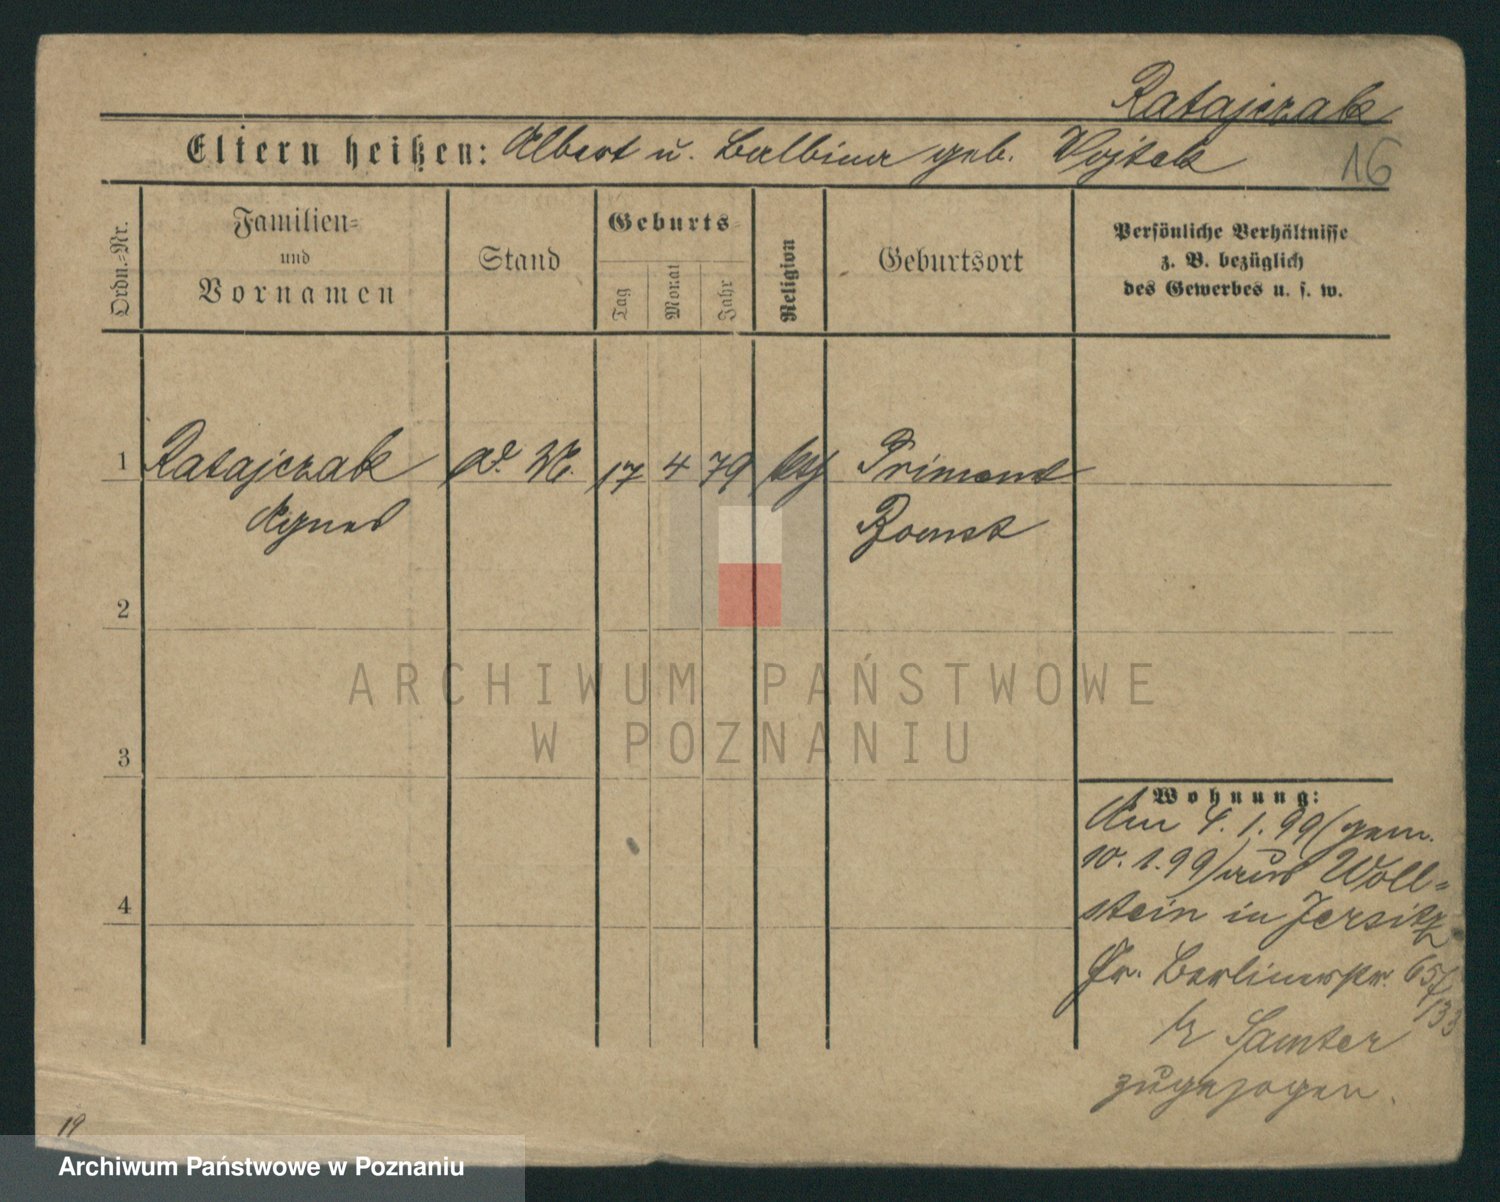 Ratajczak
Eltern heißen: Albert u. Balbina geb. Wojtek
16
Ordn.-Nr.
Familien- und Vornamen
Stand
Geburts-
Tag
Monat
Jahr
Religion
Geburtsort
Persönliche Verhältnisse
z. B. bezüglich
des Gewerbes u. s. w.
1 Ratajczak 17 4 79 kth Priment
Agnes Bomst
2
3
4
Wohnung:
Am 4.1.99 (gem.
10.1.99) aus Woll-
stein in Jersitz
Gr. Berlinerstr. 65/
133
Samter
zugezogen.
19
ARCHIWUM PAŃSTWOWE
W POZNANIU
Archiwum Państwowe w Poznaniu